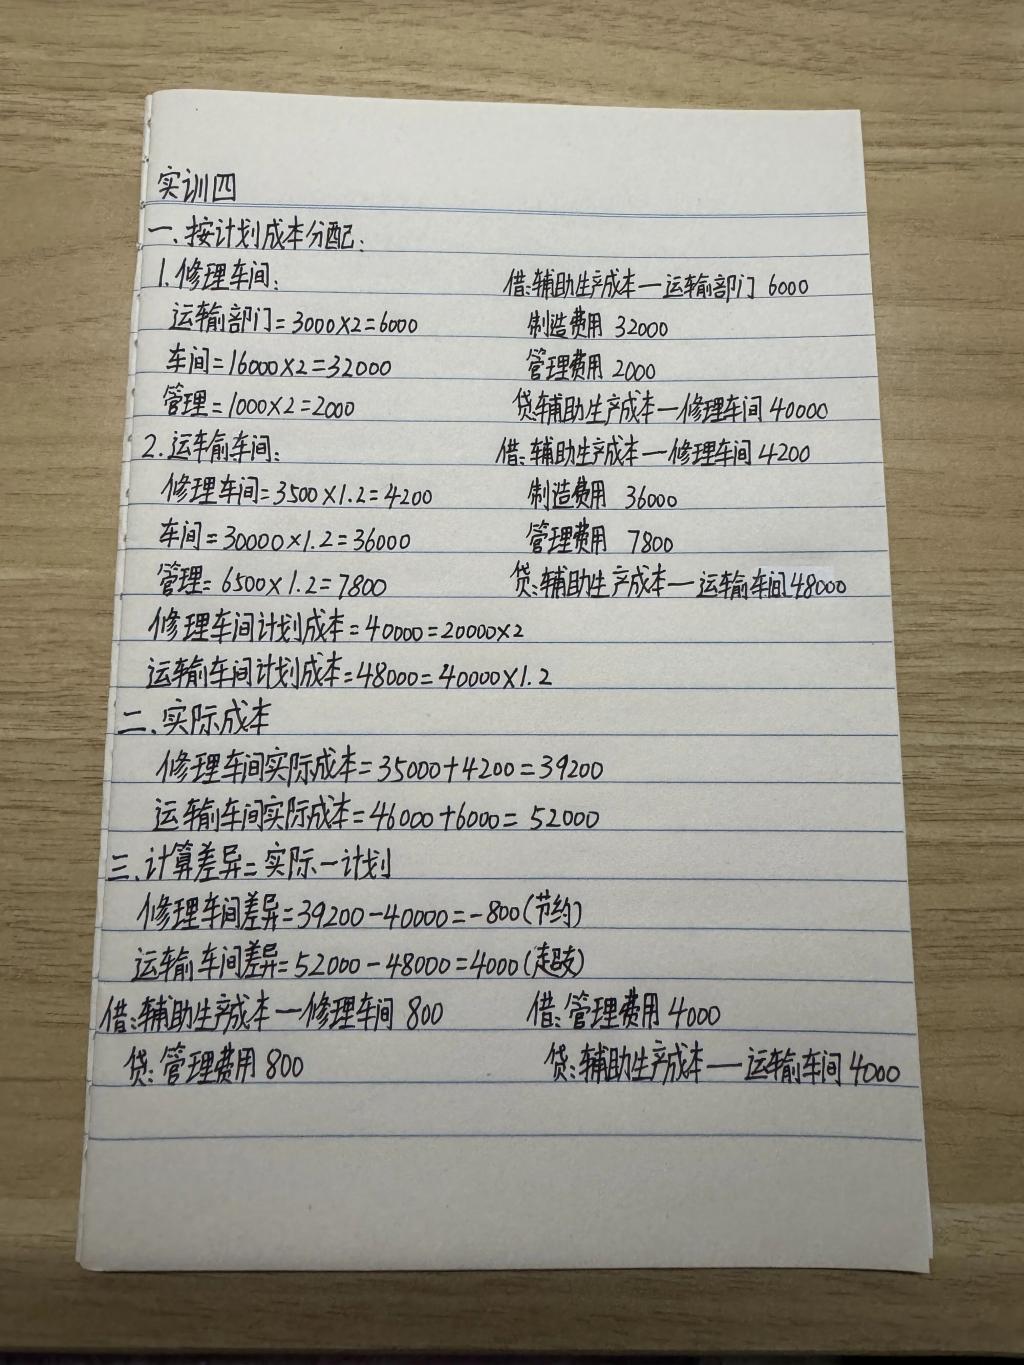 实训四
一、按计划成本分配:
1.修理车间: 借:辅助生产成本—运输部门 6000
运输部门=3000×2=6000 制造费用 32000
车间=16000×2=32000 管理费用 2000
管理=1000×2=2000 贷:辅助生产成本—修理车间 40000
2.运输车间: 借:辅助生产成本—修理车间 4200
修理车间=3500×1.2=4200 制造费用 36000
车间=30000×1.2=36000 管理费用 7800
管理=6500×1.2=7800 贷:辅助生产成本—运输车间48000
修理车间计划成本=40000=20000×2
运输车间计划成本=48000=40000×1.2
二、实际成本
修理车间实际成本=35000+4200=39200
运输车间实际成本=46000+6000=52000
三、计算差异=实际-计划
修理车间差异=39200-40000=-800(节约)
运输车间差异=52000-48000=4000(超支)
借:辅助生产成本—修理车间 800 借:管理费用 4000
贷:管理费用 800 贷:辅助生产成本—运输车间 4000